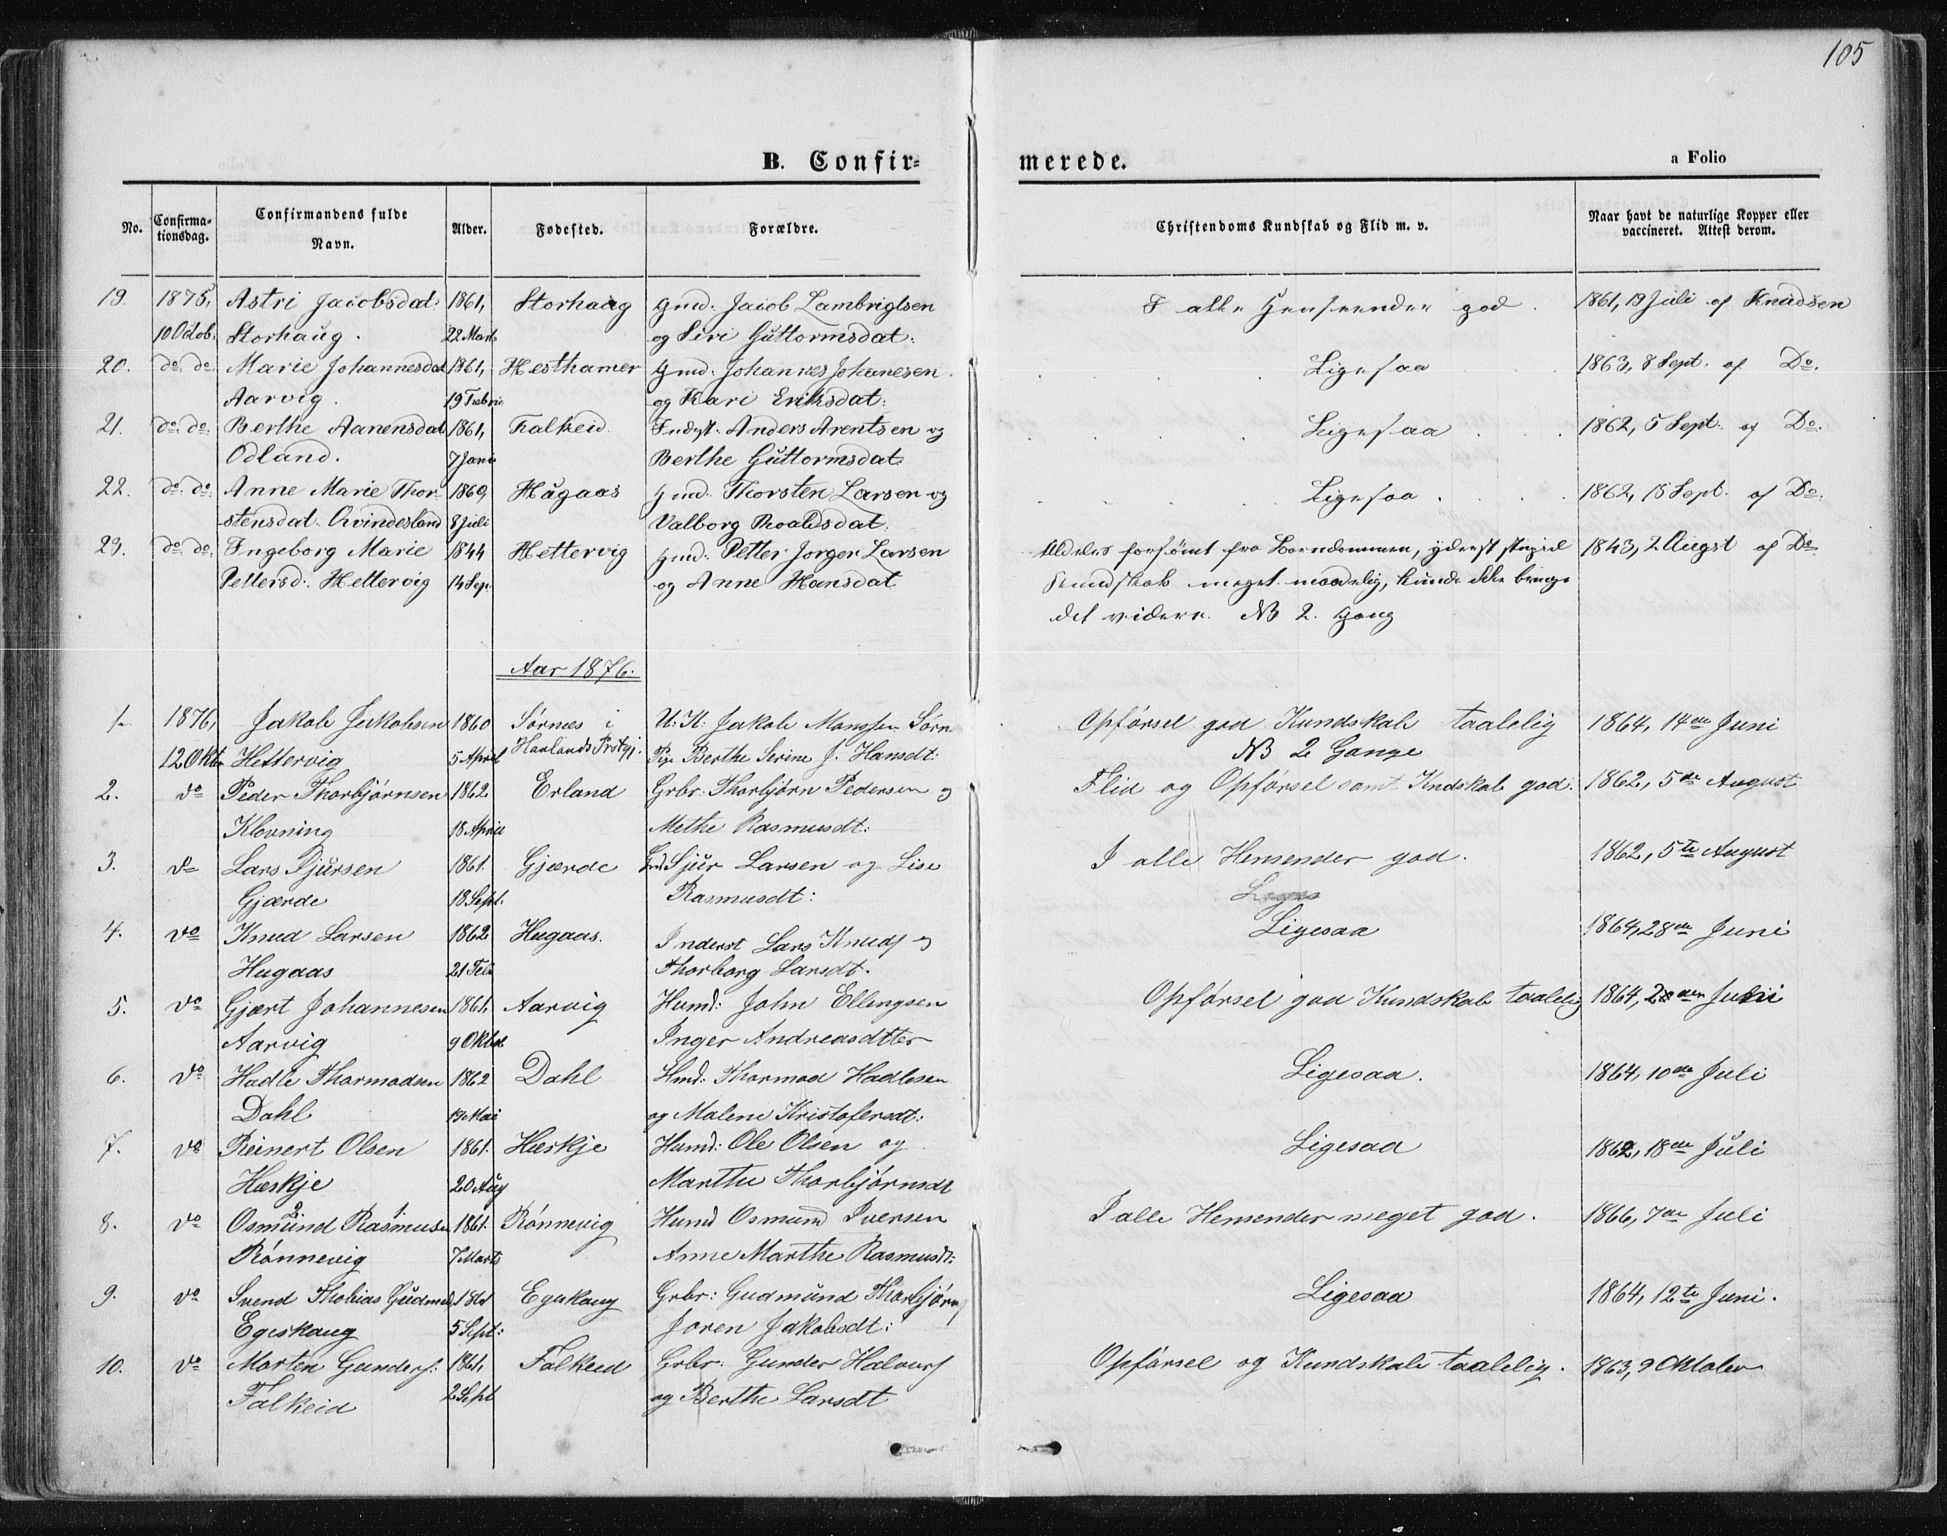 105
B. Confirmerede.
a Folio
No. Confirmationsdag. Confirmandens fulde Navn. Alder. Fødested. Forældre. Christendoms Kundskab og Flid m. v. Naar havt de naturlige Kopper eller vaccineret. Attest derom.
19. 1875, Astri Jacobsdat: 1861, Storhaug Gmd. Jacob Lambrigtsen I alle Henseender god. 1861, 19 Juli af Knudsen
10 Octob: Storhaug. 22 Marts og Siri Guttormsdat:
20. do: do: Marie Johannesdat 1861, Hesthamer Gmd: Johannes Johanesen Ligesaa 1863, 8 Sept. af Do.
Aarvig. 19 Febr og Kari Eriksdat:
21. do: do: Berthe Aanensdat 1861, Falkeid. Inderst. Anders Arentsen og Ligesaa 1862, 5 Sept. af Do.
Odland. 7 Janu Berthe Guttormsdat:
22. do: do: Anne Marie Thor- 1860, Hugaas Gmd. Thorsten Larsen og Ligesaa. 1862, 15 Sept. af Do.
stensdat. Qvindesland 8 Juli Valborg Roaldsdat:
23. do: do: Ingeborg Marie 1844 Hettervig Gmd: Petter Jørger Larsen Aldeles forsømt fra Barndommen, yderst stupid 1843, 2 Augst af Do
Pettersd:. Hettervig 14 Sep. og Anne Hansdat Kundskab meget maadelig, kunde ikke bringe
det videre. NB 2. Gang
Aar 1876.
1. 1876, Jakob Jakobsen 1860 Sørnes i U: K: Jakob Monssen Sørn Opførsel god Kundskab taalelig 1864, 14de Juni
12 Oktr Hettervig 5 April Havlands Prstgj. Pige Berthe Serine J. Hansdt: NB 2 Gange
2. do Peder Thorbjørnsen 1862 Erland Grbr: Thorbjørn Pedersen og Flid og Opførsel samt Kndskab god. 1862, 5de August
Klovning 18 April Methe Rasmusdt:
3. do Lars Sjursen 1861. Gjærde Gmd Sjur Larsen og Lise I alle Hensender god. 1862, 5te August
Gjærde 18 Sept. Rasmusdt:
4. do Knud Larsen 1862 Hugaas. Inderst Lars Knuds og Ligesaa 1864, 28de Juni
Hugaas 21 Feb Thorborg Larsdt.
5. do Gjært Johannesen 1861. Aarvig Husmd: John Ellingsen Opførsel god Kundskab taalelig 1864, den Juli
Aarvig 9 Oktob Inger Andreasdtter
6. do Hadle Thormodsen 1862 Dahl Hmd: Thormod Hadlesen Ligesaa. 1864, 10de Juli
Dahl 19 Mai og Malene Kristofersdt:
7. do Reinert Olsen 1861. Hæskje Husmd: Ole Olsen og Ligesaa 1862, 18de Juli
Hæskje 20 Aug Marthe Thorbjørnsdt
8. do Osmund Rasmusen 1861. Rønnevig Husmd Osmund Iversen I alle Hensender meget god. 1866, 7de Juli
Rønnevig 7 Marts Anne Marthe Rasmusdt:
9. do Svend Thobias Gudmds 1861 Egeskaug Grbr: Gudmund Thorbjørns Ligesaa 1864, 12te Juni.
Egeskaug 5 Sept: Joren Jakobsdt:
10. do Morten Gunders: 1861, Falkeid Grbr: Gunder Halvors Opførsel og Kundskab taalelig. 1863, 9 Oktober
Falkeid 2 Sept og Berthe Larsdt